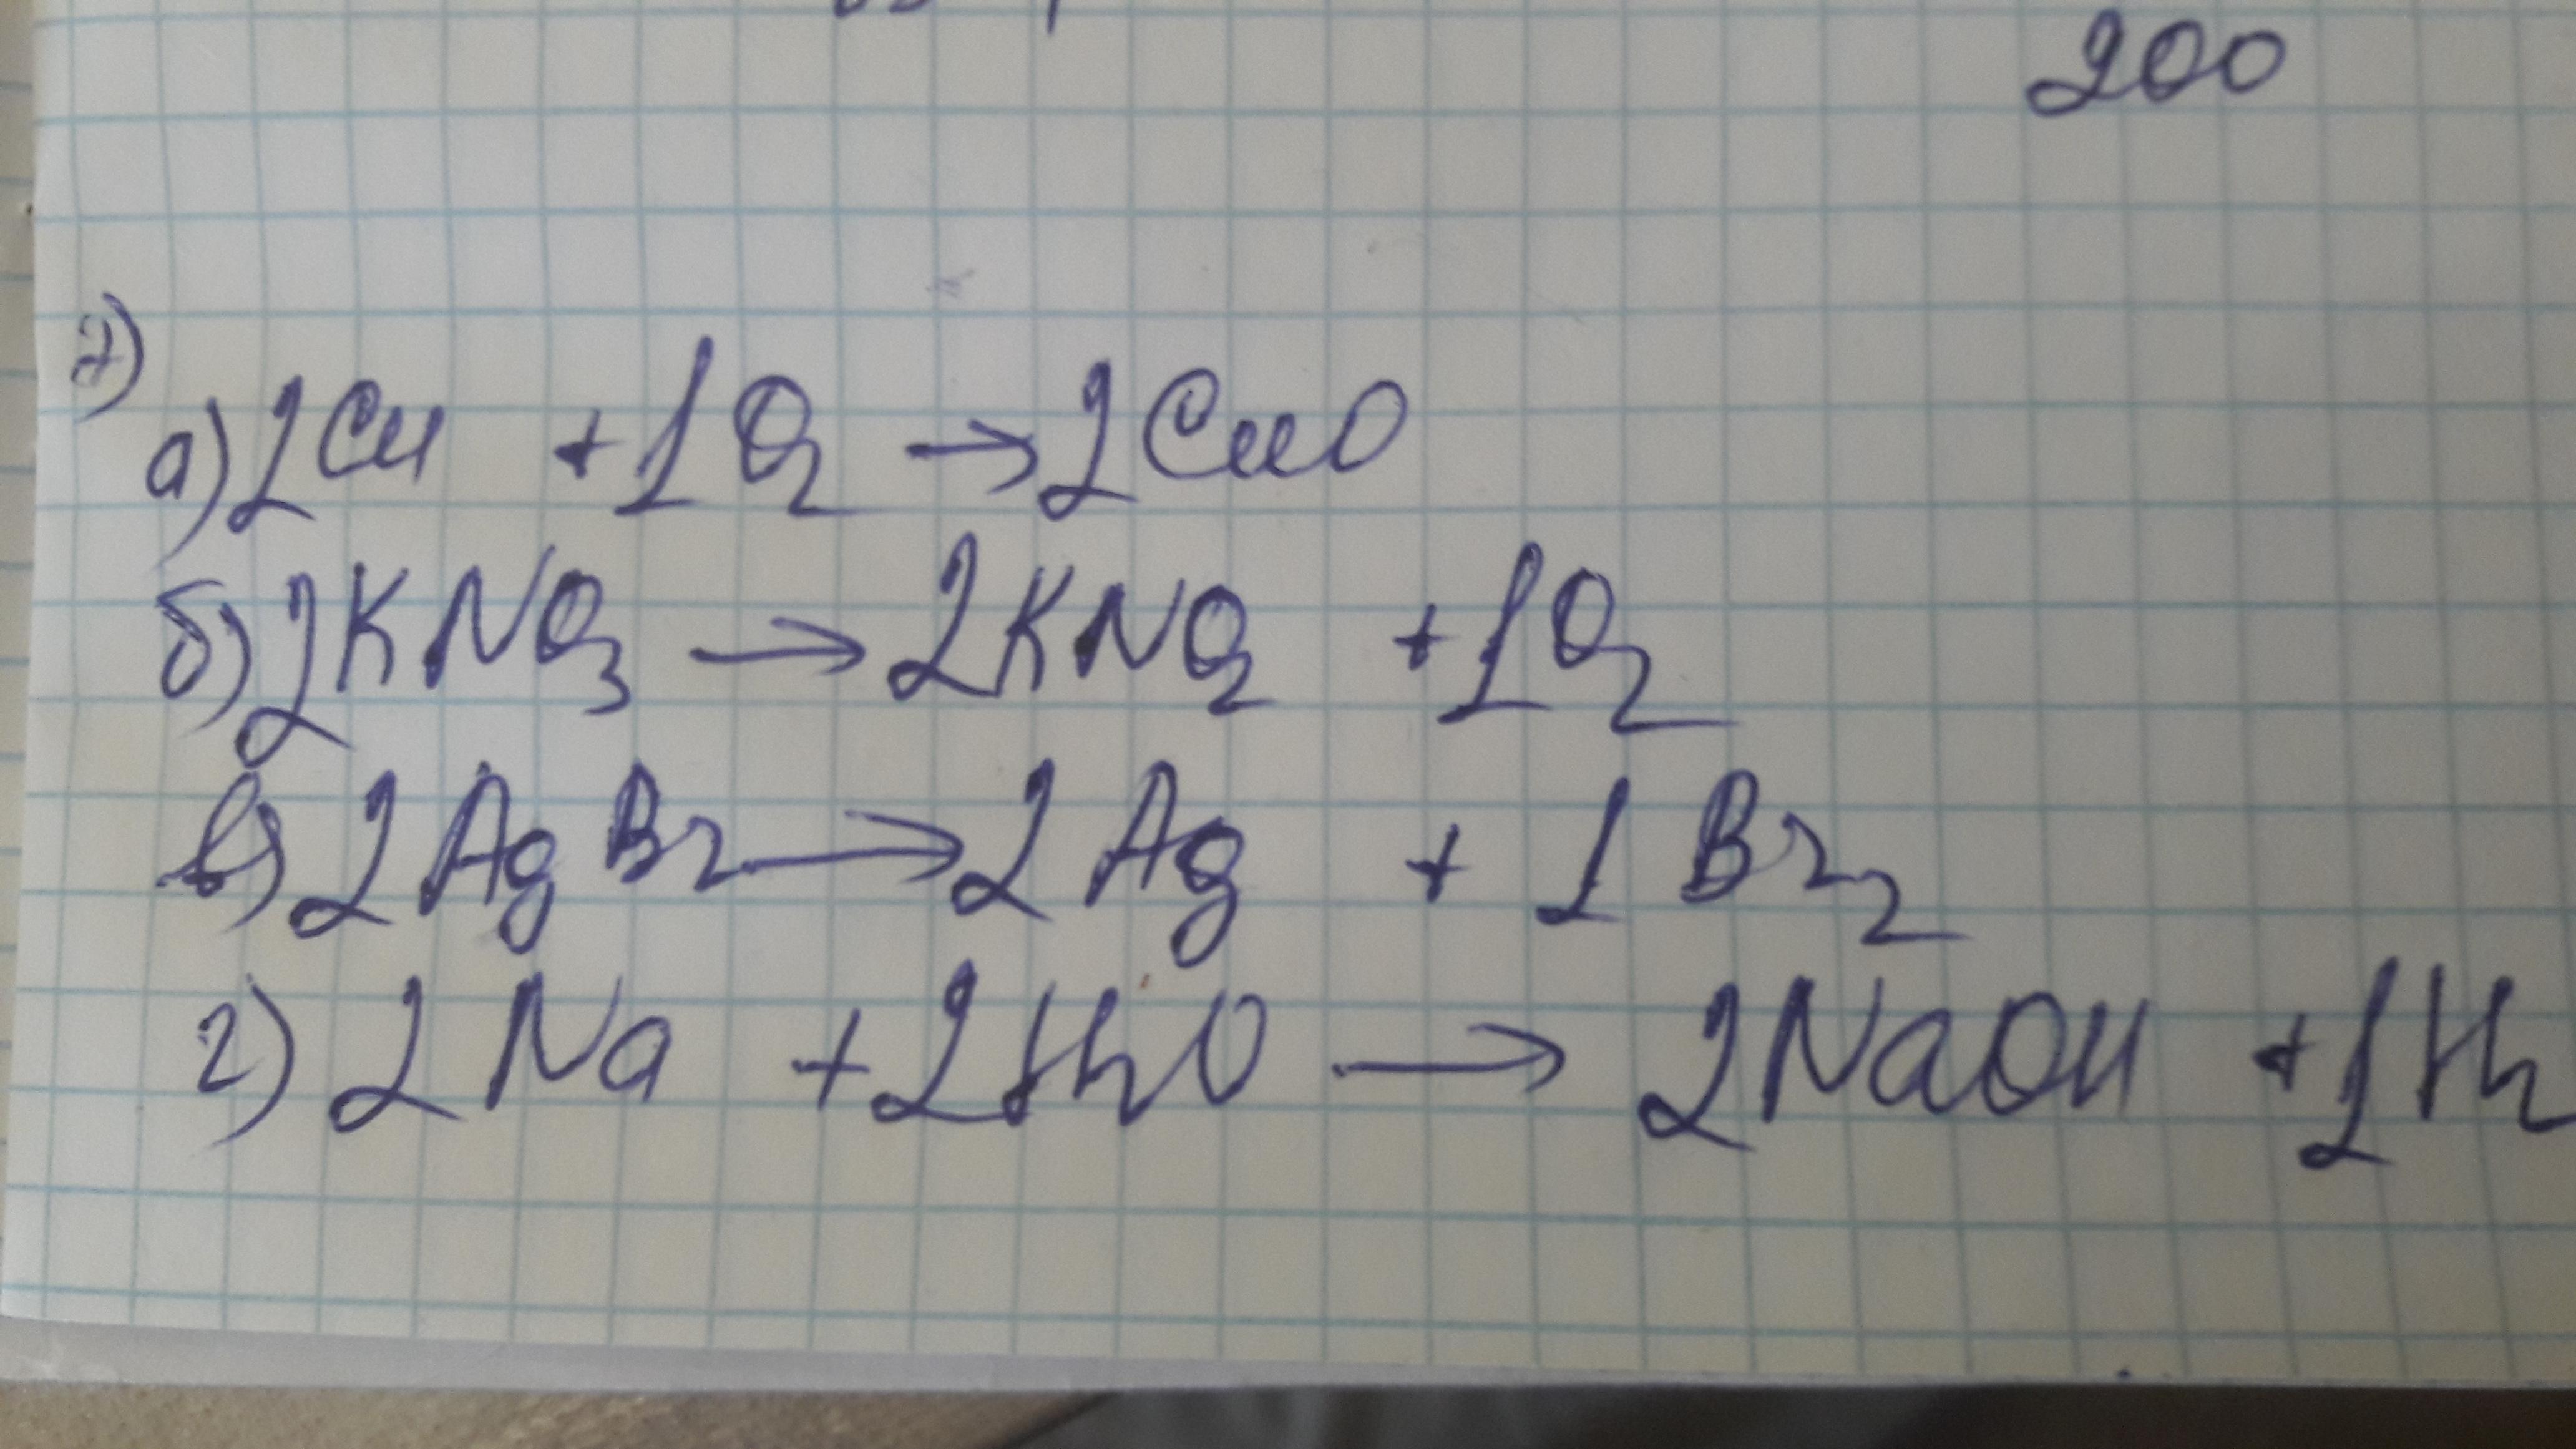 200
7)
а) 2Cu + 1O₂ → 2CuO
б) 2KNO₃ → 2KNO₂ + 1O₂
в) 2AgBr → 2Ag + 1Br₂
г) 2Na + 2H₂O → 2NaOH + 1H₂